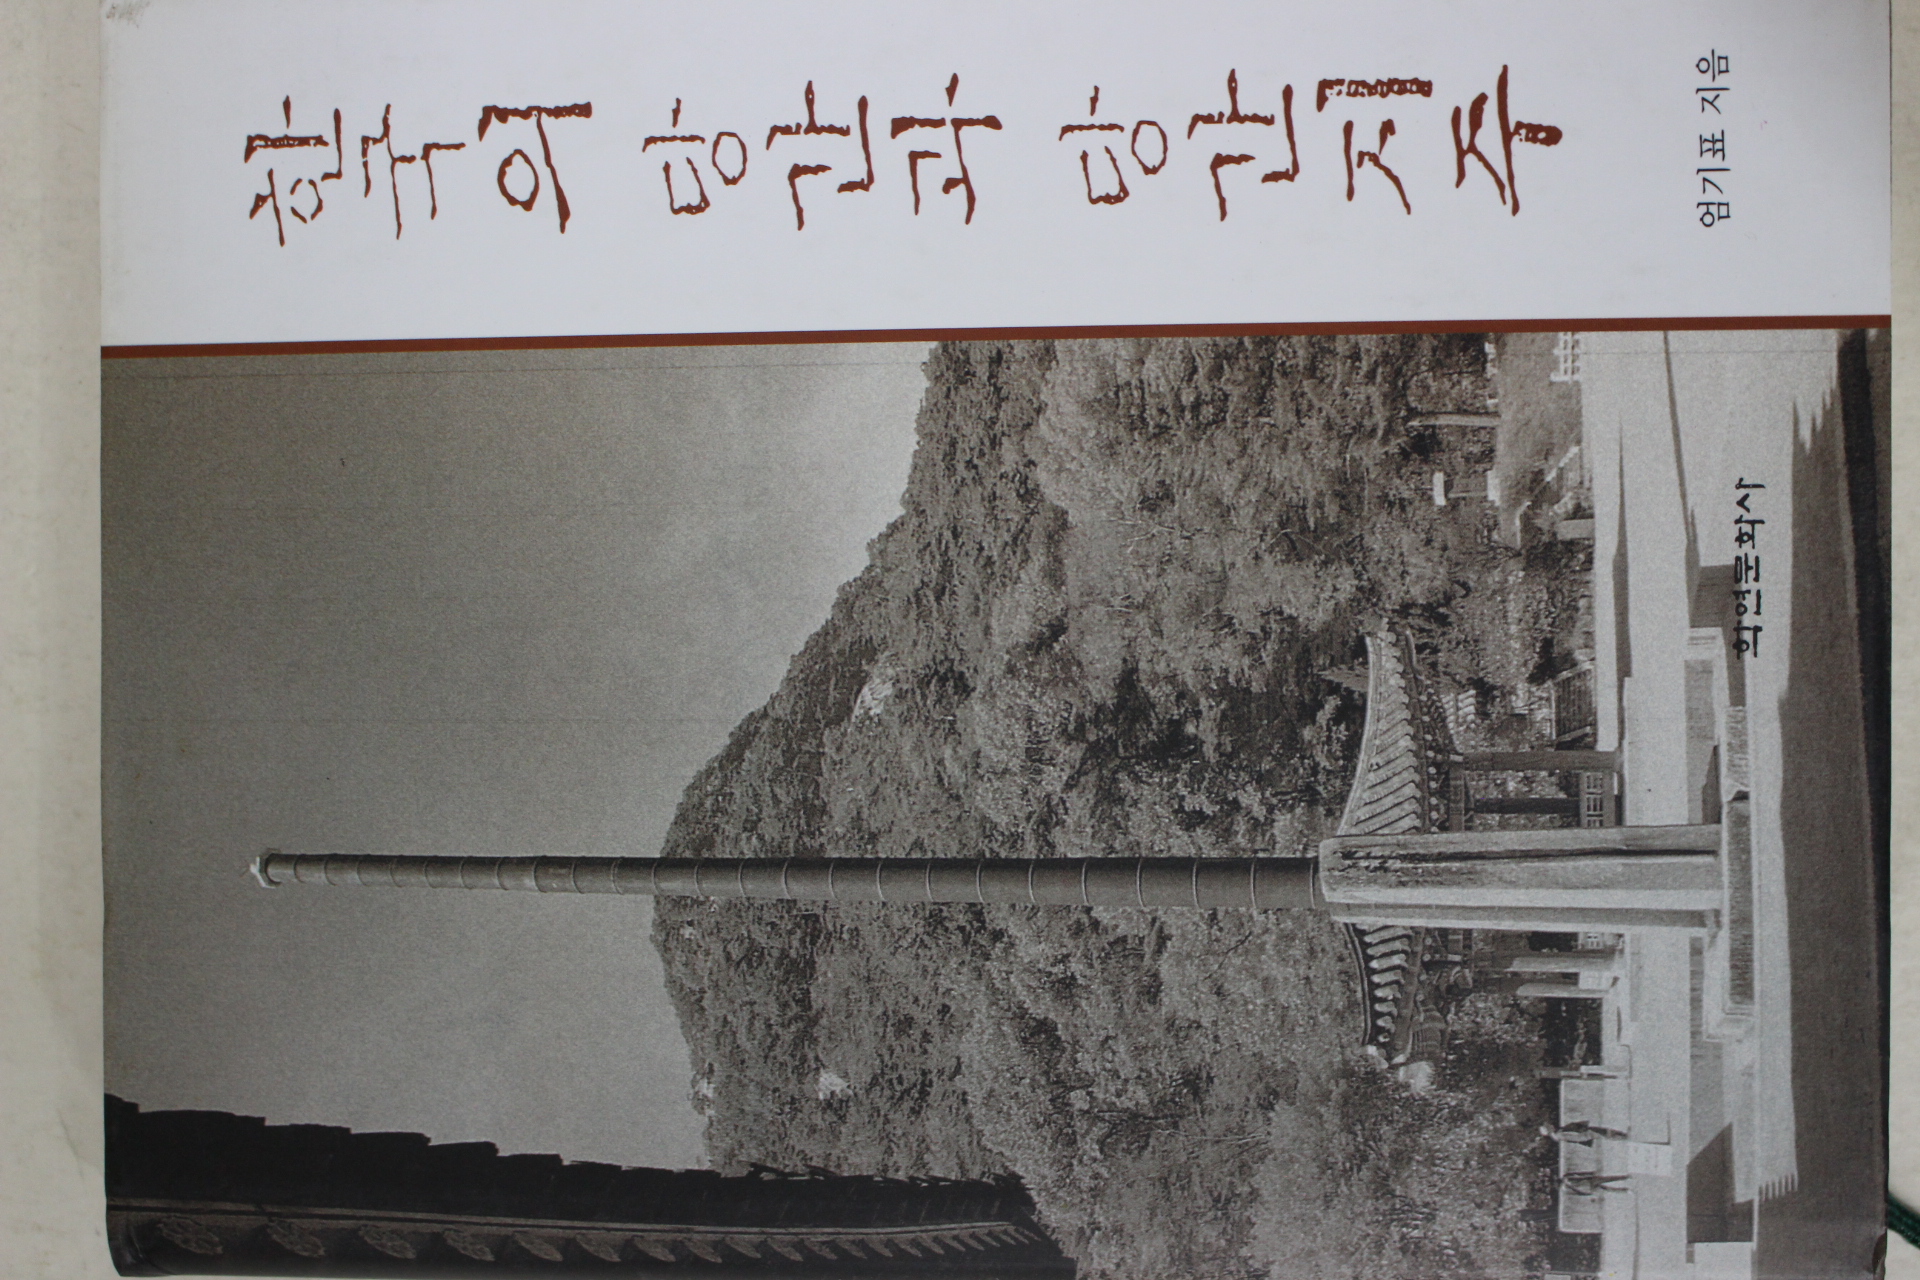 한국의 당간과 당간지주
엄기표 지음
학연문화사